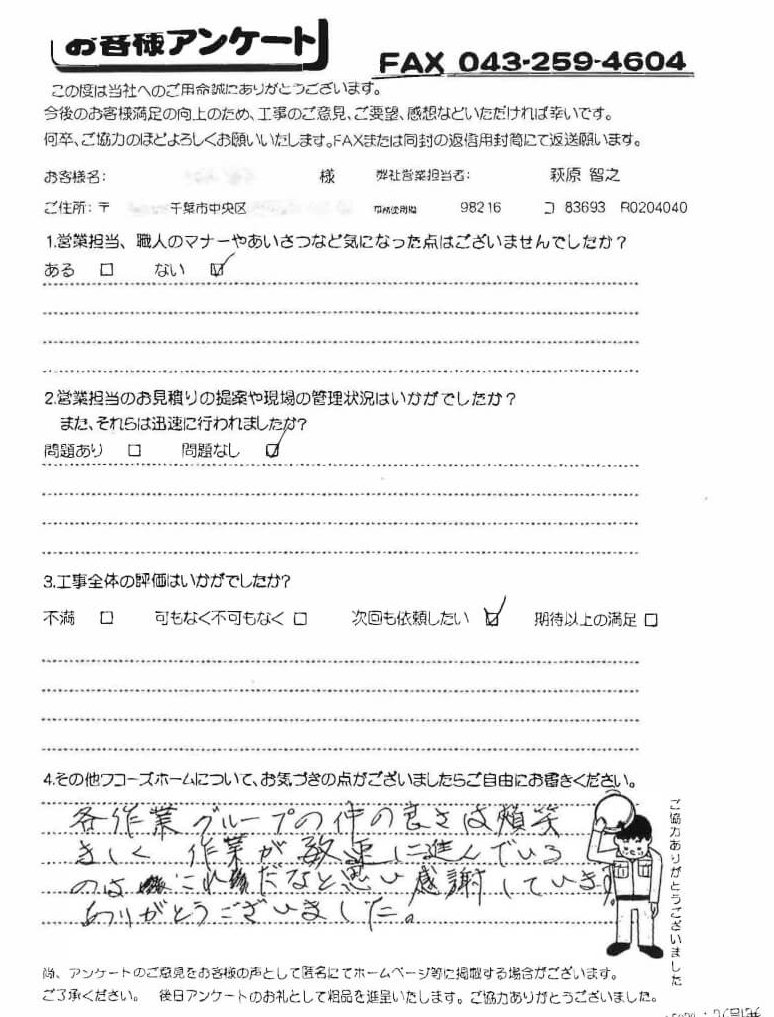 お客様アンケート
FAX 043-259-4604
この度は当社へのご用命誠にありがとうございます。
今後のお客様満足の向上のため、工事のご意見、ご要望、感想などいただければ幸いです。
何卒、ご協力のほどよろしくお願いいたします。FAXまたは同封の返信用封筒にて返送願います。
お客様名： 様 弊社営業担当者： 萩原 智之
ご住所：〒 千葉市中央区 事務使用欄 98216 コ 83693 R0204040
1.営業担当、職人のマナーやあいさつなど気になった点はございませんでしたか？
ある □ ない ☑
2.営業担当のお見積りの提案や現場の管理状況はいかがでしたか？
また、それらは迅速に行われましたか？
問題あり □ 問題なし ☑
3.工事全体の評価はいかがでしたか?
不満 □ 可もなく不可もなく □ 次回も依頼したい ☑ 期待以上の満足 □
4.その他フコーズホームについて、お気づきの点がございましたらご自由にお書きください。
各作業グループの仲の良さは頬笑
ましく 作業が 敏速に進んでいる
のは これだなと思い感謝しています
ありがとうございました。
ご協力ありがとうございました
尚、アンケートのご意見をお客様の声として匿名にてホームページ等に掲載する場合がございます。
ご了承ください。 後日アンケートのお礼として粗品を進呈いたします。ご協力ありがとうございました。